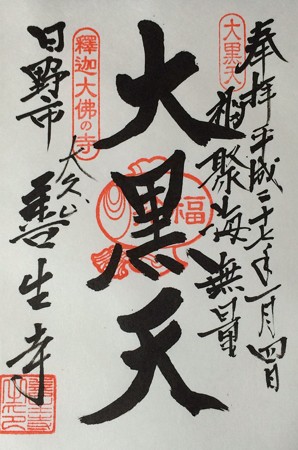 奉拝 平成二十七年一月四日
大黒天
福聚海無量
大黒天
福
釋迦大佛の寺
大久山
日野市 善生寺